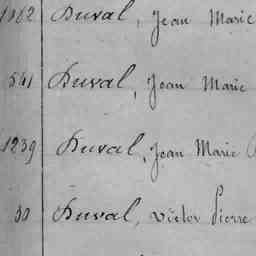 1062 Duval, Jean Marie
541 Duval, Jean Marie
1239 Duval, Jean Marie
30 Duval, Victor Pierre